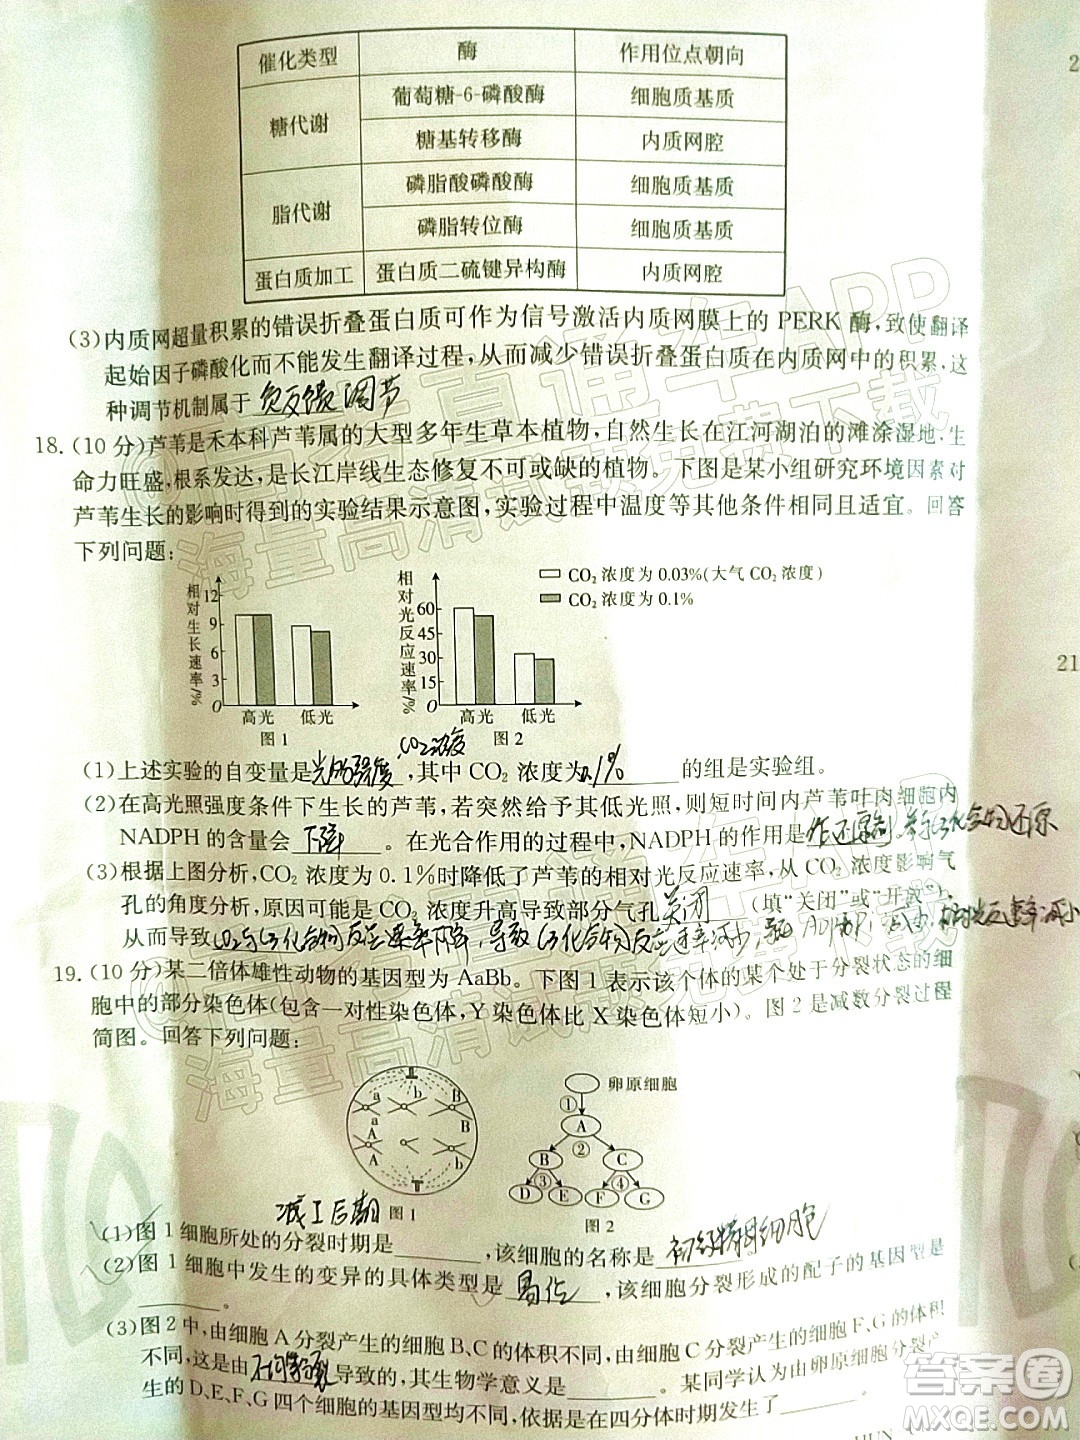 催化类型 酶 作用位点朝向
糖代谢 葡萄糖-6-磷酸酶 细胞质基质
糖基转移酶 内质网腔
脂代谢 磷脂酸磷酸酶 细胞质基质
磷脂转位酶 细胞质基质
蛋白质加工 蛋白质二硫键异构酶 内质网腔
(3)内质网超量积累的错误折叠蛋白质可作为信号激活内质网膜上的 PERK 酶,致使翻译
起始因子磷酸化而不能发生翻译过程,从而减少错误折叠蛋白质在内质网中的积累,这
种调节机制属于 负反馈调节
18.(10 分)芦苇是禾本科芦苇属的大型多年生草本植物,自然生长在江河湖泊的滩涂湿地,生
命力旺盛,根系发达,是长江岸线生态修复不可或缺的植物。下图是某小组研究环境因素对
芦苇生长的影响时得到的实验结果示意图,实验过程中温度等其他条件相同且适宜。回答
下列问题:
CO₂ 浓度为 0.03%(大气 CO₂ 浓度)
CO₂ 浓度为 0.1%
相对生长速率/%
12
9
6
3
0
高光 低光
图 1
相对光反应速率/%
60
45
30
15
0
高光 低光
图 2
CO₂浓度
(1)上述实验的自变量是光的强度,其中 CO₂ 浓度为 0.1% 的组是实验组。
(2)在高光照强度条件下生长的芦苇,若突然给予其低光照,则短时间内芦苇叶肉细胞内
NADPH 的含量会 下降 。在光合作用的过程中,NADPH 的作用是作还原剂,参与化合物还原
(3)根据上图分析,CO₂ 浓度为 0.1%时降低了芦苇的相对光反应速率,从 CO₂ 浓度影响气
孔的角度分析,原因可能是 CO₂ 浓度升高导致部分气孔 关闭 (填“关闭”或“开放”),
从而导致
19.(10 分)某二倍体雄性动物的基因型为 AaBb。下图 1 表示该个体的某个处于分裂状态的细
胞中的部分染色体(包含一对性染色体,Y 染色体比 X 染色体短小)。图 2 是减数分裂过程
简图。回答下列问题:
a b
a B B
A
A b
减Ⅰ后期 图 1
卵原细胞
①
A
②
B C
③ ④
D E F G
图 2
(1)图 1 细胞所处的分裂时期是 ,该细胞的名称是 初级精母细胞
(2)图 1 细胞中发生的变异的具体类型是 易位 ,该细胞分裂形成的配子的基因型是
。
(3)图 2 中,由细胞 A 分裂产生的细胞 B、C 的体积不同,由细胞 C 分裂产生的细胞 F、G 的体积
不同,这是由不均等分裂导致的,其生物学意义是 。某同学认为由卵原细胞分裂产
生的 D、E、F、G 四个细胞的基因型均不同,依据是在四分体时期发生了
HUN
2
21
高考直通车APP
海量高清试题免费下载
答案圈
MXQE.COM